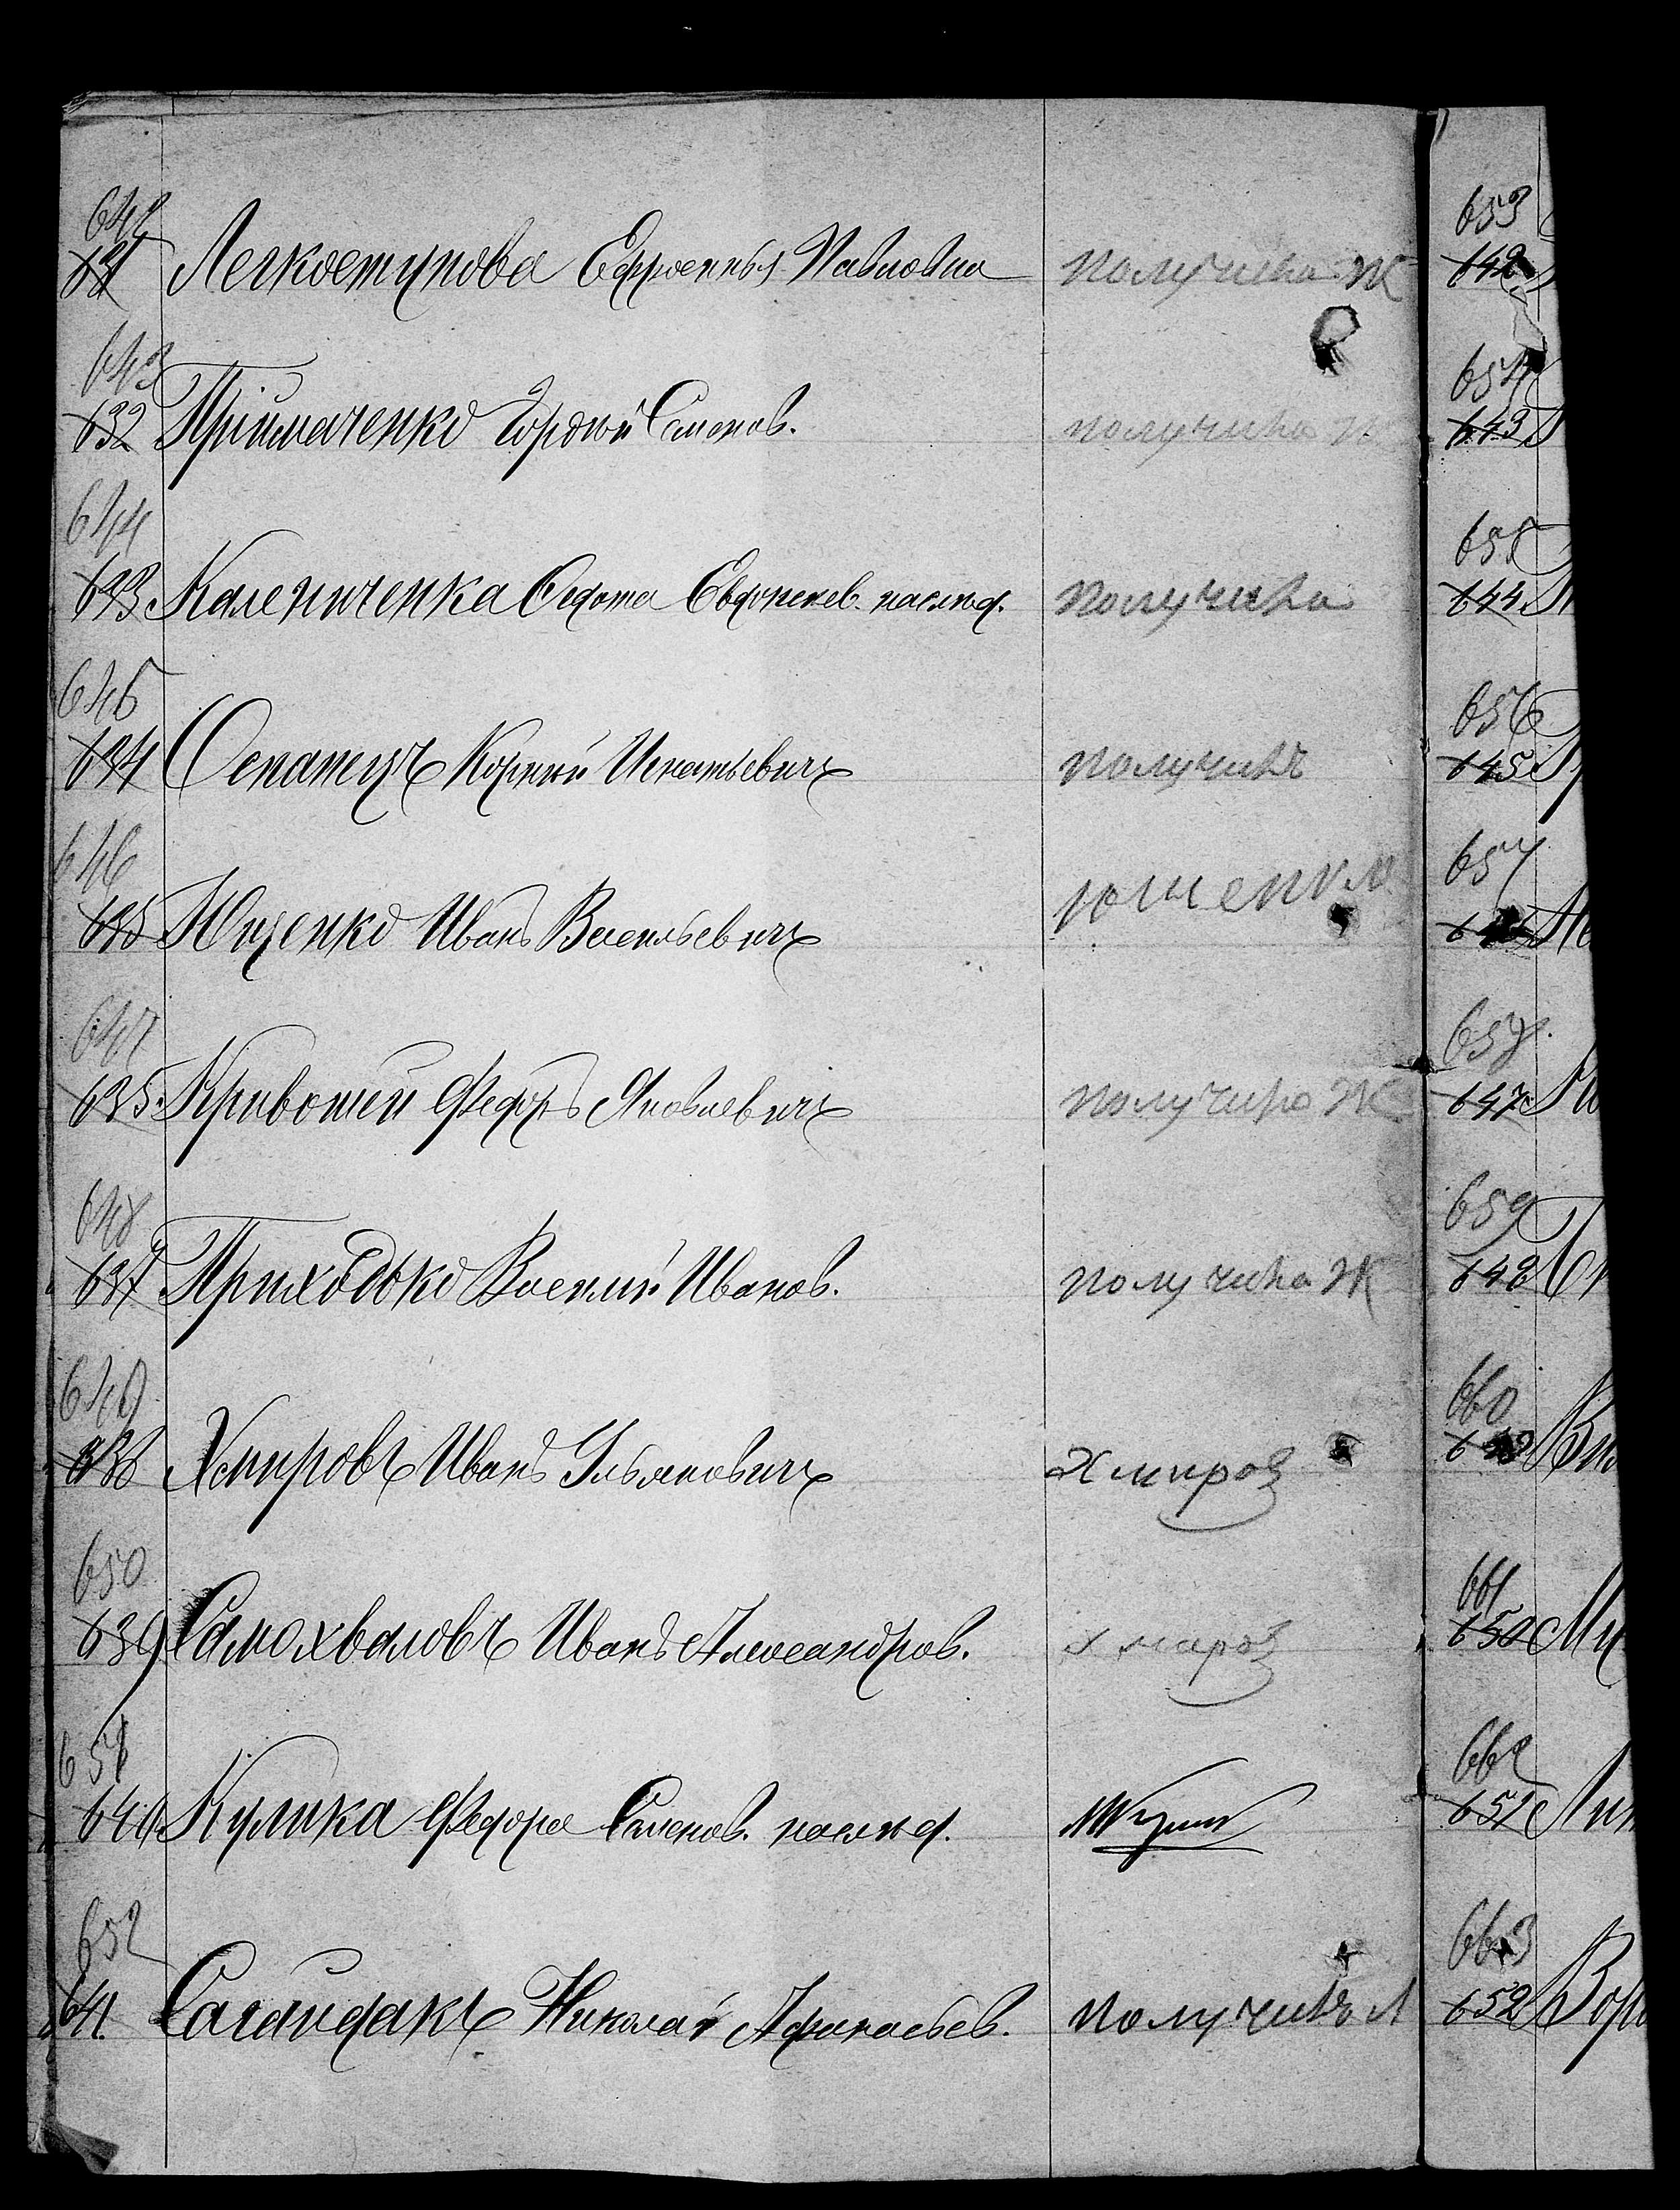 642
631 Легкоступова Ефросинья Павловна получила Ж
643
632 Приймаченко Гордій Семенов. получила Ж
644
633 Калениченка Федота Евдокимов. наслѣд. получила
645
634 Сепатцъ Корній Игнатьевичъ получилъ
646
635 Ющенко Иванъ Васильевичъ Юшенко
647
635. Кривошей Федоръ Яковлевичъ получила Ж
648
637 Приходько Василій Иванов. получила Ж
649
638 Хмировъ Иванъ Ульяновичъ Хмиров
650
639 Самохваловъ Иванъ Александров. Хмаров
651
640 Кулика Федора Семенов. наслѣд.
652
641. Сагайдакъ Николай Афанасьев. получилъ
653
642
654
643
655
644
656
645
657
658
647
659
648
660
661
650
662
651
663
652